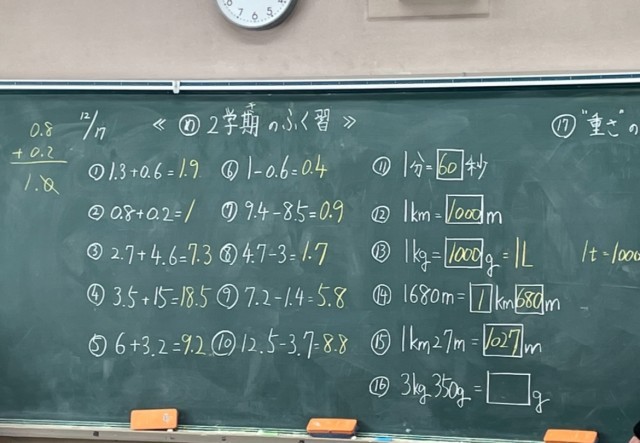 12/17
≪ め 2学期のふく習 ≫
⑰ "重さ"の
0.8
+ 0.2
1.0
① 1.3+0.6=1.9
② 0.8+0.2=1
③ 2.7+4.6=7.3
④ 3.5+15=18.5
⑤ 6+3.2=9.2
⑥ 1-0.6=0.4
⑦ 9.4-8.5=0.9
⑧ 4.7-3=1.7
⑨ 7.2-1.4=5.8
⑩ 12.5-3.7=8.8
⑪ 1分=60秒
⑫ 1km=1000m
⑬ 1kg=1000g=1L
⑭ 1680m=1km680m
⑮ 1km27m=1027m
⑯ 3kg350g=□g
1t=1000